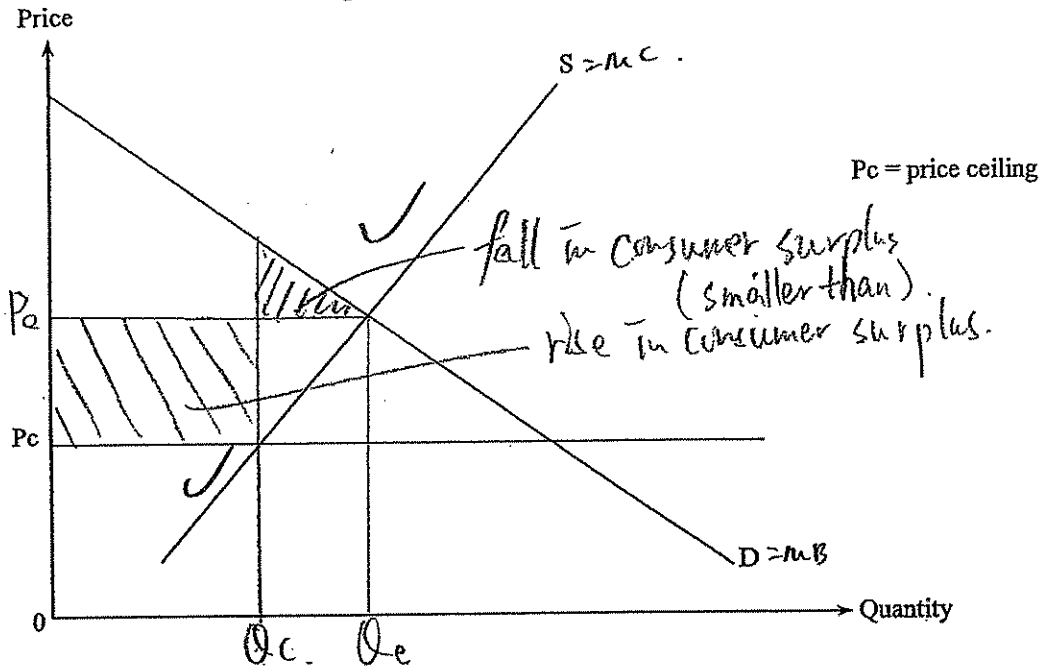 Price
S = MC .
Pc = price ceiling
fall in consumer surplus
(smaller than).
rise in consumer surplus.
Pe
Pc
D = MB
0
Quantity
Qc.
Qe